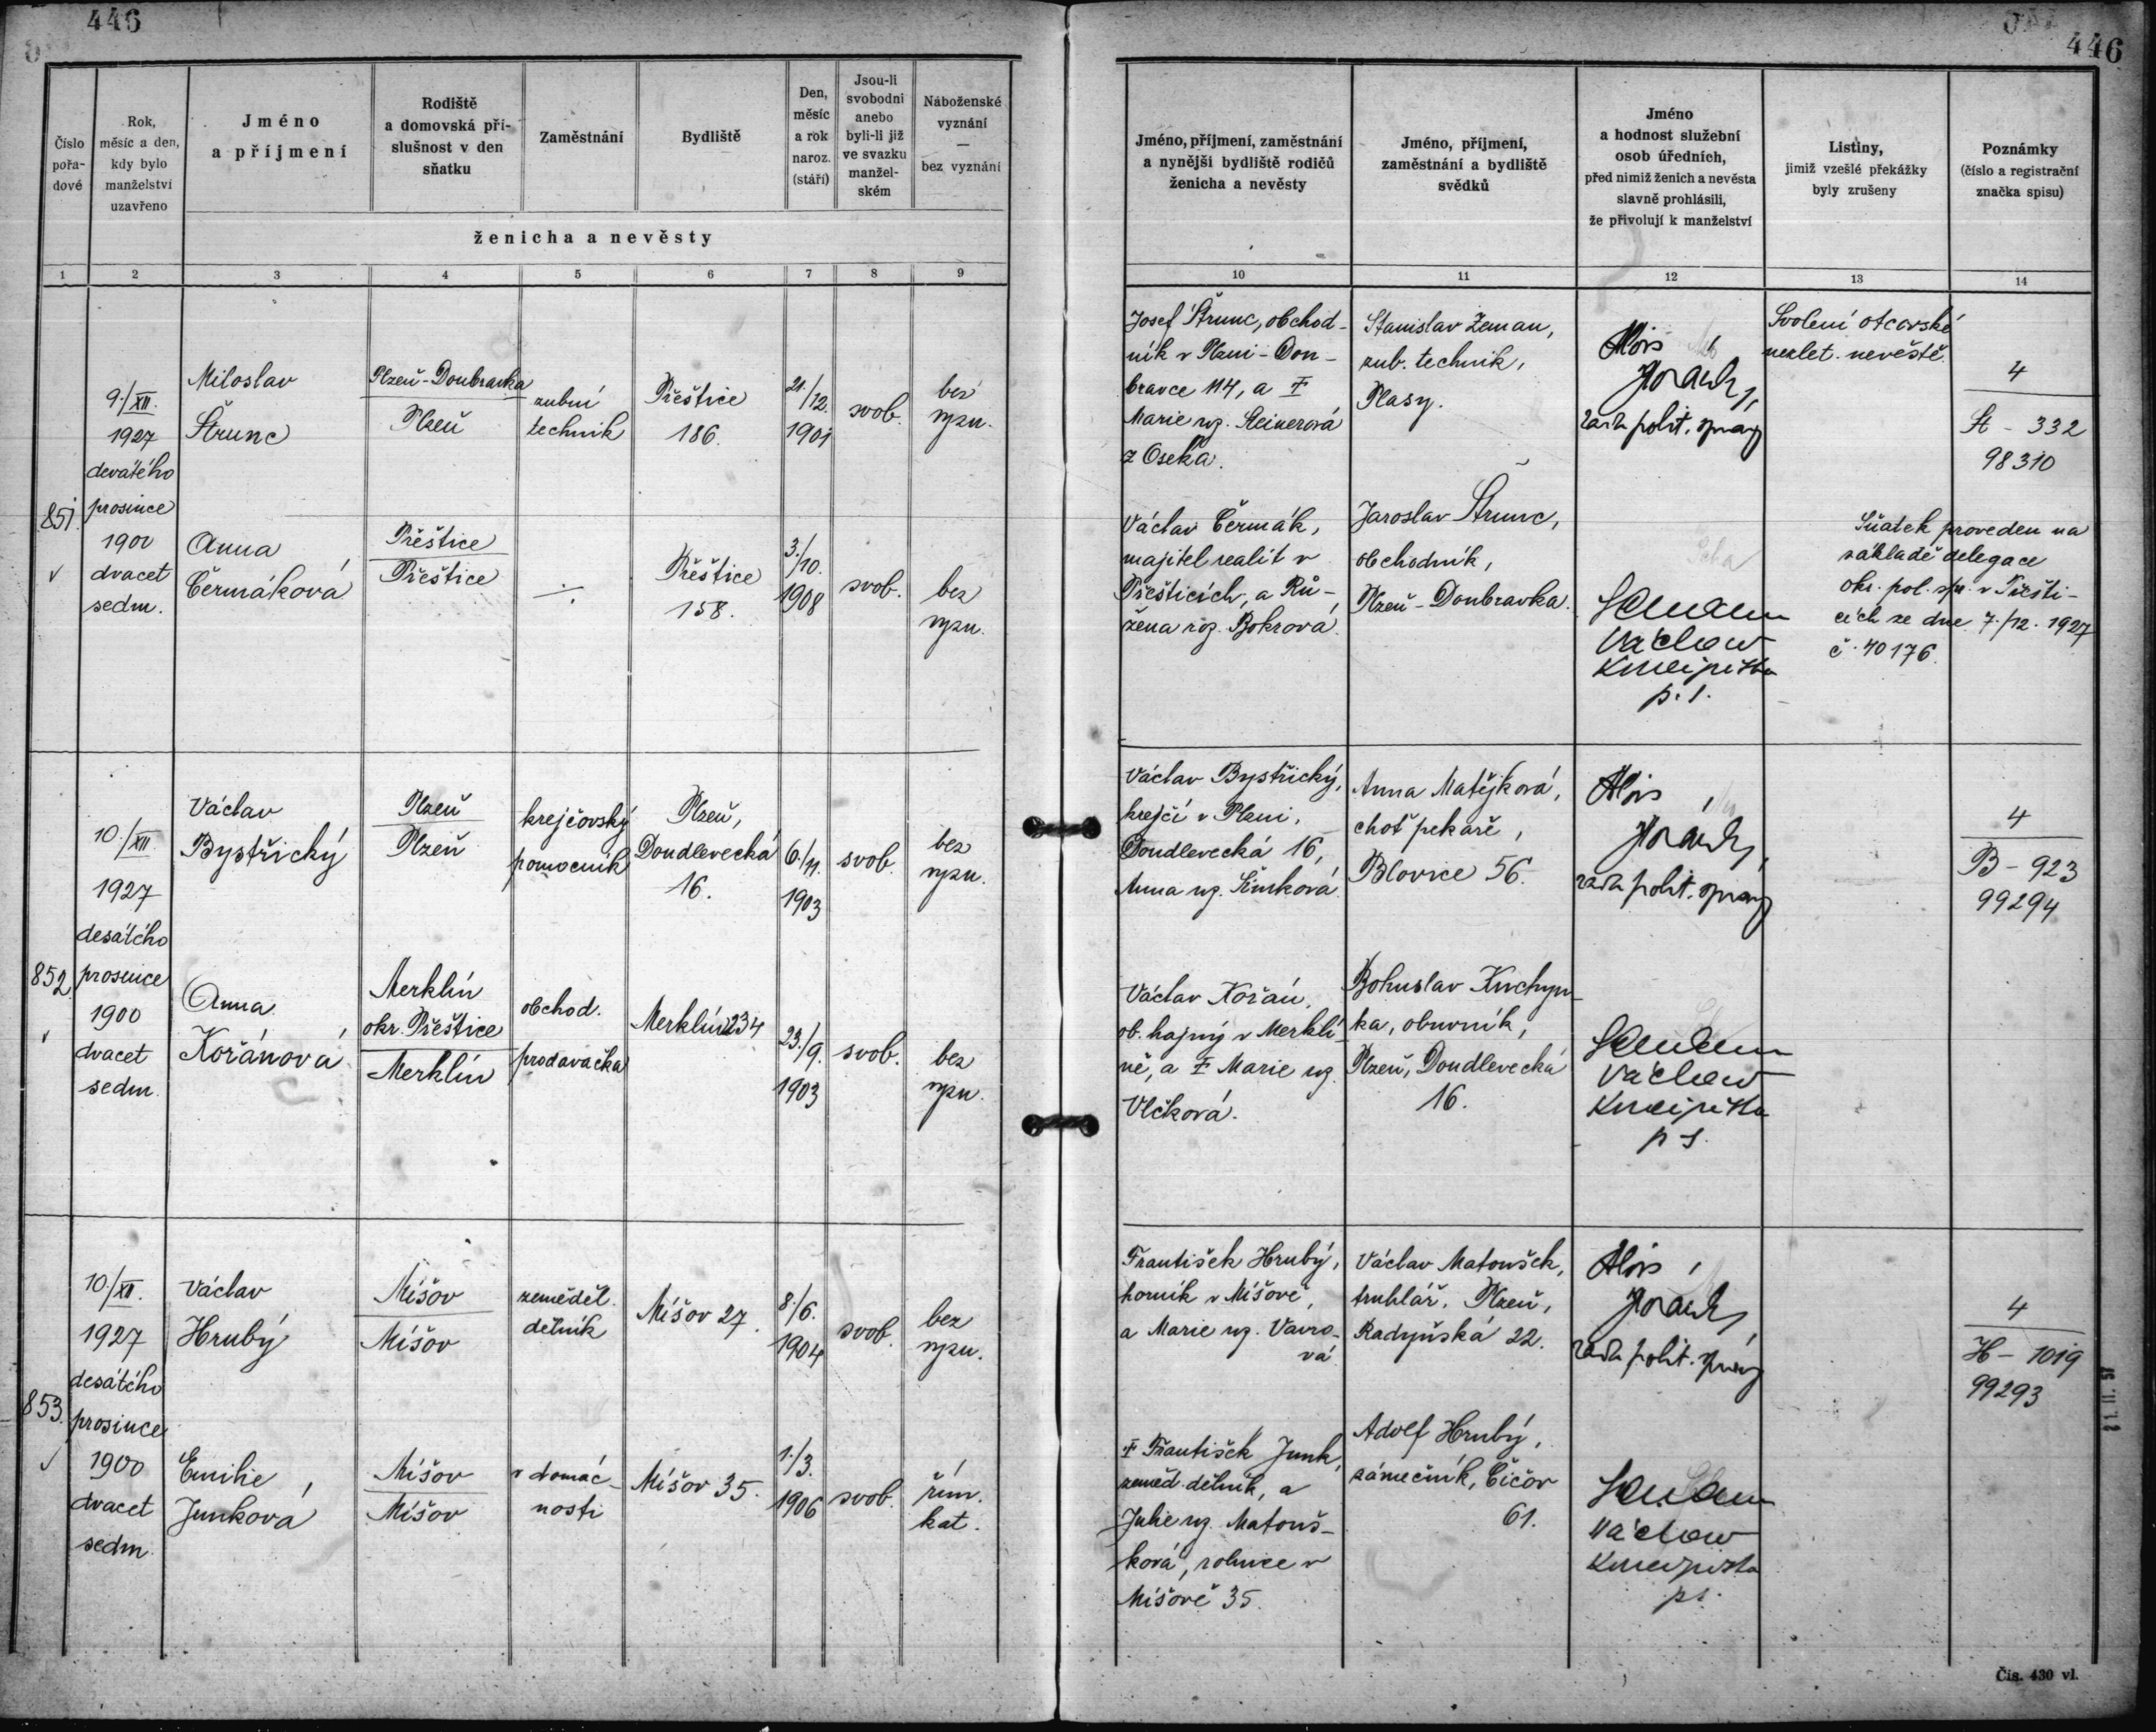 446
446
Číslo pořa- dové
Rok, měsíc a den, kdy bylo manželství uzavřeno
Jméno a příjmení
Rodiště a domovská pří- slušnost v den sňatku
Zaměstnání
Bydliště
Den, měsíc a rok naroz. (stáří)
Jsou-li svobodni anebo byli-li již ve svazku manžel- ském
Náboženské vyznání — bez vyznání
ženicha a nevěsty
Jméno, příjmení, zaměstnání a nynější bydliště rodičů ženicha a nevěsty
Jméno, příjmení, zaměstnání a bydliště svědků
Jméno a hodnost služební osob úředních, před nimiž ženich a nevěsta slavně prohlásili, že přivolují k manželství
Listiny, jimiž vzešlé překážky byly zrušeny
Poznámky (číslo a registrační značka spisu)
1 2 3 4 5 6 7 8 9 10 11 12 13 14
851.
9./XII.
1927
devátého
prosince
1900
dvacet
sedm.
Miloslav
Štrunc
Plzeň-Doubravka
Plzeň
zubní
technik
Přeštice
186.
21./12.
1901
svob.
bez
vyzn.
Anna
Čermáková
Přeštice
Přeštice
Přeštice
158.
3./10.
1908
svob.
bez
vyzn.
Josef Štrunc, obchod-
ník v Plzni-Dou-
bravce 114, a
Marie roz. Steinerová
z Oseka.
Václav Čermák,
majitel realit v
Přešticích, a Rů-
žena roz. Bokrová.
Stanislav Zeman,
zub. technik,
Plasy.
Jaroslav Štrunc,
obchodník,
Plzeň-Doubravka.
Alois
rada polit. správy
Václav
p. s.
Svolení otcovské
nezlet. nevěstě.
Sňatek proveden na
základě delegace
okr. pol. spr. v Přešti-
cích ze dne 7./12. 1927
č. 40176.
4
St - 332
98310
852
10./XII.
1927
desátého
prosince
1900
dvacet
sedm.
Václav
Bystřický
Plzeň
Plzeň
krejčovský
pomocník
Plzeň,
Doudlevecká
16.
6./11.
1903
svob.
bez
vyzn.
Anna
Kořánová
Merklín
okr. Přeštice
Merklín
obchod.
prodavačka
Merklín 234
23./9.
1903
svob.
bez
vyzn.
Václav Bystřický,
krejčí v Plzni,
Doudlevecká 16,
Anna roz. Šimková.
Václav Kořán,
ob. hajný v Merklí-
ně, a Marie roz.
Vlčková.
Anna Matějková,
choť pekaře,
Blovice 56.
Bohuslav Kuchyn-
ka, obuvník,
Plzeň, Doudlevecká
16.
Alois
rada polit. správy
Václav
p. s.
4
B - 923
99294
853.
10./XII.
1927
desátého
prosince
1900
dvacet
sedm.
Václav
Hrubý
Míšov
Míšov
zeměděl.
dělník
Míšov 27.
8./6.
1904
svob.
bez
vyzn.
Emilie
Junková
Míšov
Míšov
v domác-
nosti
Míšov 35.
1./3.
1906
svob.
řím.
kat.
František Hrubý,
horník v Míšově,
a Marie roz. Vavro-
vá.
František Junk,
zeměd. dělník, a
Julie roz. Matouš-
ková, rolnice v
Míšově 35.
Václav Matoušek,
truhlář, Plzeň,
Radyňská 22.
Adolf Hrubý,
zámečník, Čičov
61.
Alois
rada polit. správy
Václav
p. s.
4
H - 1019
99293
21. II. 57
Čís. 430 vl.